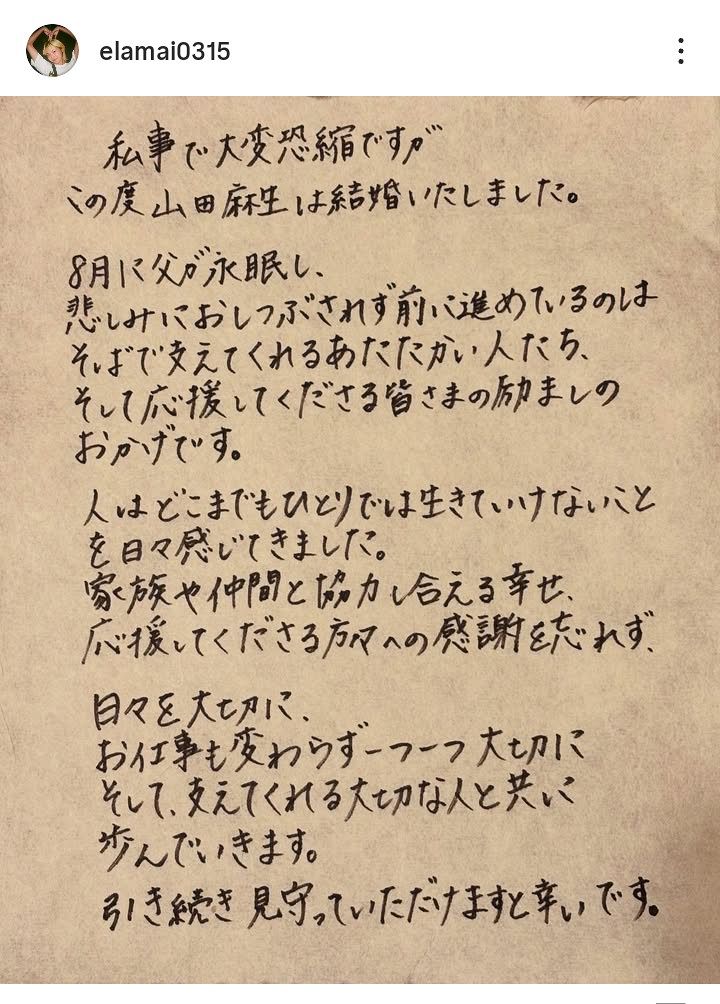 elamai0315
私事で大変恐縮ですが
この度山田麻生は結婚いたしました。
8月に父が永眠し、
悲しみにおしつぶされず前に進めているのは
そばで支えてくれるあたたかい人たち、
そして応援してくださる皆さまの励ましの
おかげです。
人はどこまでもひとりでは生きていけないこと
を日々感じてきました。
家族や仲間と協力し合える幸せ、
応援してくださる方々への感謝を忘れず、
日々を大切に、
お仕事も変わらず一つ一つ大切に
そして、支えてくれる大切な人と共に
歩んでいきます。
引き続き見守っていただけますと幸いです。